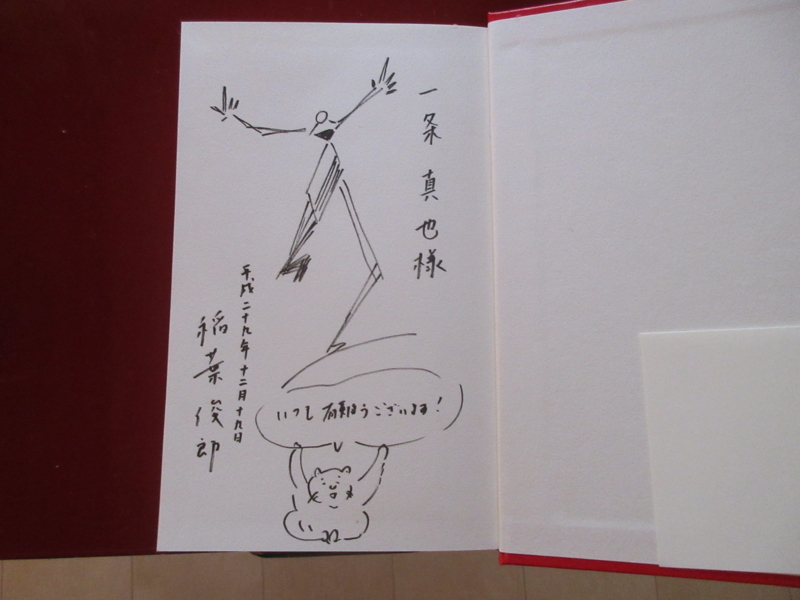 一条真也様
平成二十九年十二月十九日
稲葉俊郎
いつも有難うございます!